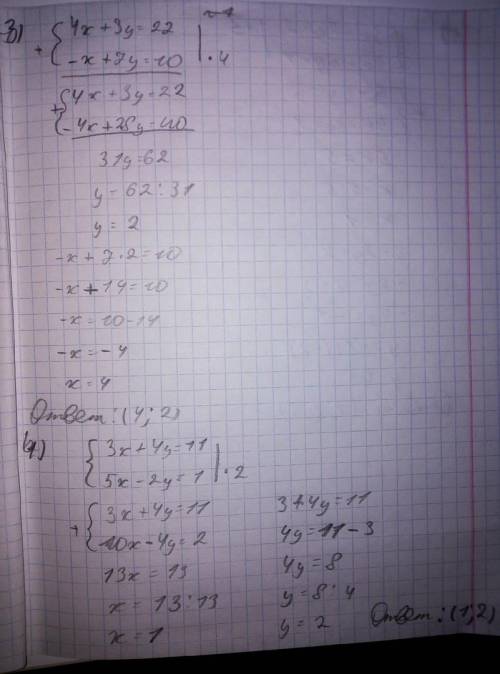 3) + { 4x + 3y = 22
-x + 7y = 10 | · 4
+ { 4x + 3y = 22
-4x + 28y = 40
31y = 62
y = 62 : 31
y = 2
-x + 7 · 2 = 10
-x + 14 = 10
-x = 10 - 14
-x = -4
x = 4
Ответ: (4; 2)
4) { 3x + 4y = 11
5x - 2y = 1 | · 2
+ { 3x + 4y = 11
10x - 4y = 2
13x = 13
x = 13 : 13
x = 1
3 + 4y = 11
4y = 11 - 3
4y = 8
y = 8 : 4
y = 2
Ответ: (1; 2)